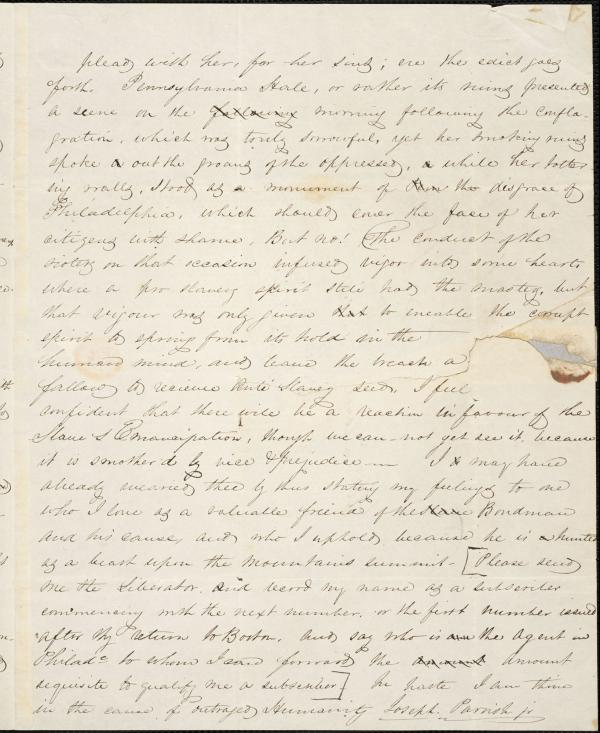 plead with her, for her sins; ere the edict goes
forth. Pennsylvania Hall, or rather its ruins presented
a scene on the following morning following the confla-
gration, which was truly sorrowful, yet her smoking ruins
spoke out the groans of the oppressed, while her totter
ing walls, stood as a monument of the disgrace of
Philadelphia, which should cover the face of her
citizens with shame, But no! The conduct of the
rioters on that occasion infused vigor into some hearts
where a pro slavery spirit still had the mastery, but
that vigour was only given to ineable the corrupt
spirit to spring from its hold in the
human mind, and leave the breach a
fallow to recieve Anti Slavery seed, I feel
confident that there will be a reaction in favour of the
Slave & Emancipation, though we can not yet see it, because
it is smother'd by vice & prejudice — I may have
already wearied thee by thus stating my feelings to one
who I love as a valuable friend of the Slave Bondman
and his cause, and who I uphold because he is hunted
as a beast upon the mountains summit - [Please send
me the Liberator. and record my name as a subscriber
commencing with the next number. or the first number issued
after thy return to Boston, and say who is the Agent in
Philada to whom I can forward the amount amount
requisite to qualify me a subscriber] In haste I am thine
in the cause of outraged Humanity Joseph. Parrish jr